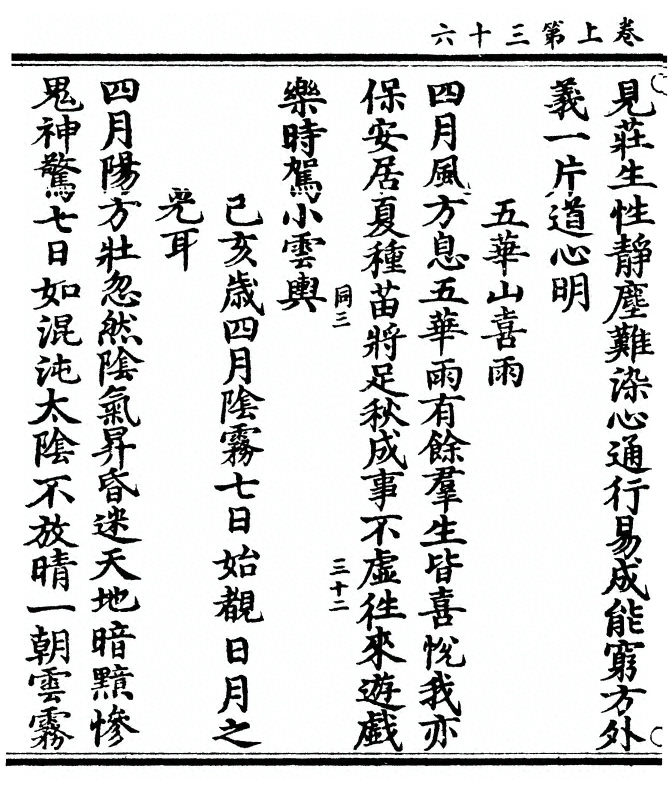 卷上第三十六
見莊生性靜塵難染心通行易成能窮方外
義一片道心明
五華山喜雨
四月風方息五華雨有餘羣生皆喜悅我亦
保安居夏種苗將足秋成事不虛徃來遊戲
同三
三十二
樂時駕小雲輿
己亥歲四月陰霧七日始覩日月之
光耳
四月陽方壯忽然陰氣昇昏迷天地暗黯慘
鬼神驚七日如混沌太陰不放晴一朝雲霧